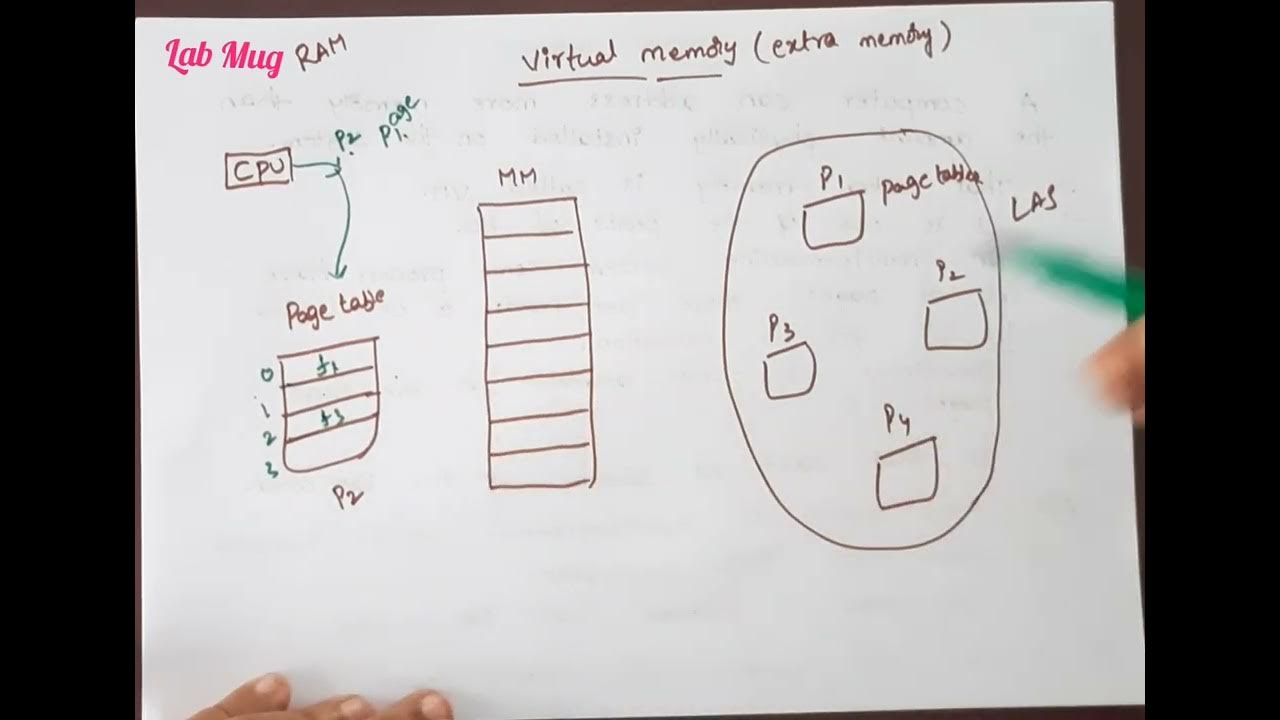 Lab Mug
RAM
Virtual memory (extra memory)
P2 P1 age
CPU
MM
P1
page table
LAS
P2
Page table
P3
0 f1
1
2 f3
3
P4
P2